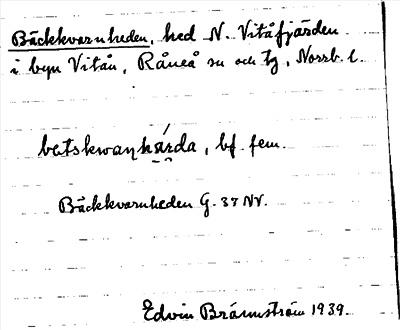 Bäckkvarnheden, hed N. Vitåfjärden
i byn Vitån, Råneå sn och tg, Norrb. l.
betskwanhárda, bf. fem.
Bäckkvarnheden G. 37 NV.
Edvin Brännström 1939.